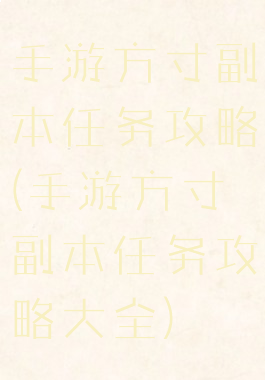 手游方寸副
本任务攻略
(手游方寸
副本任务攻
略大全)